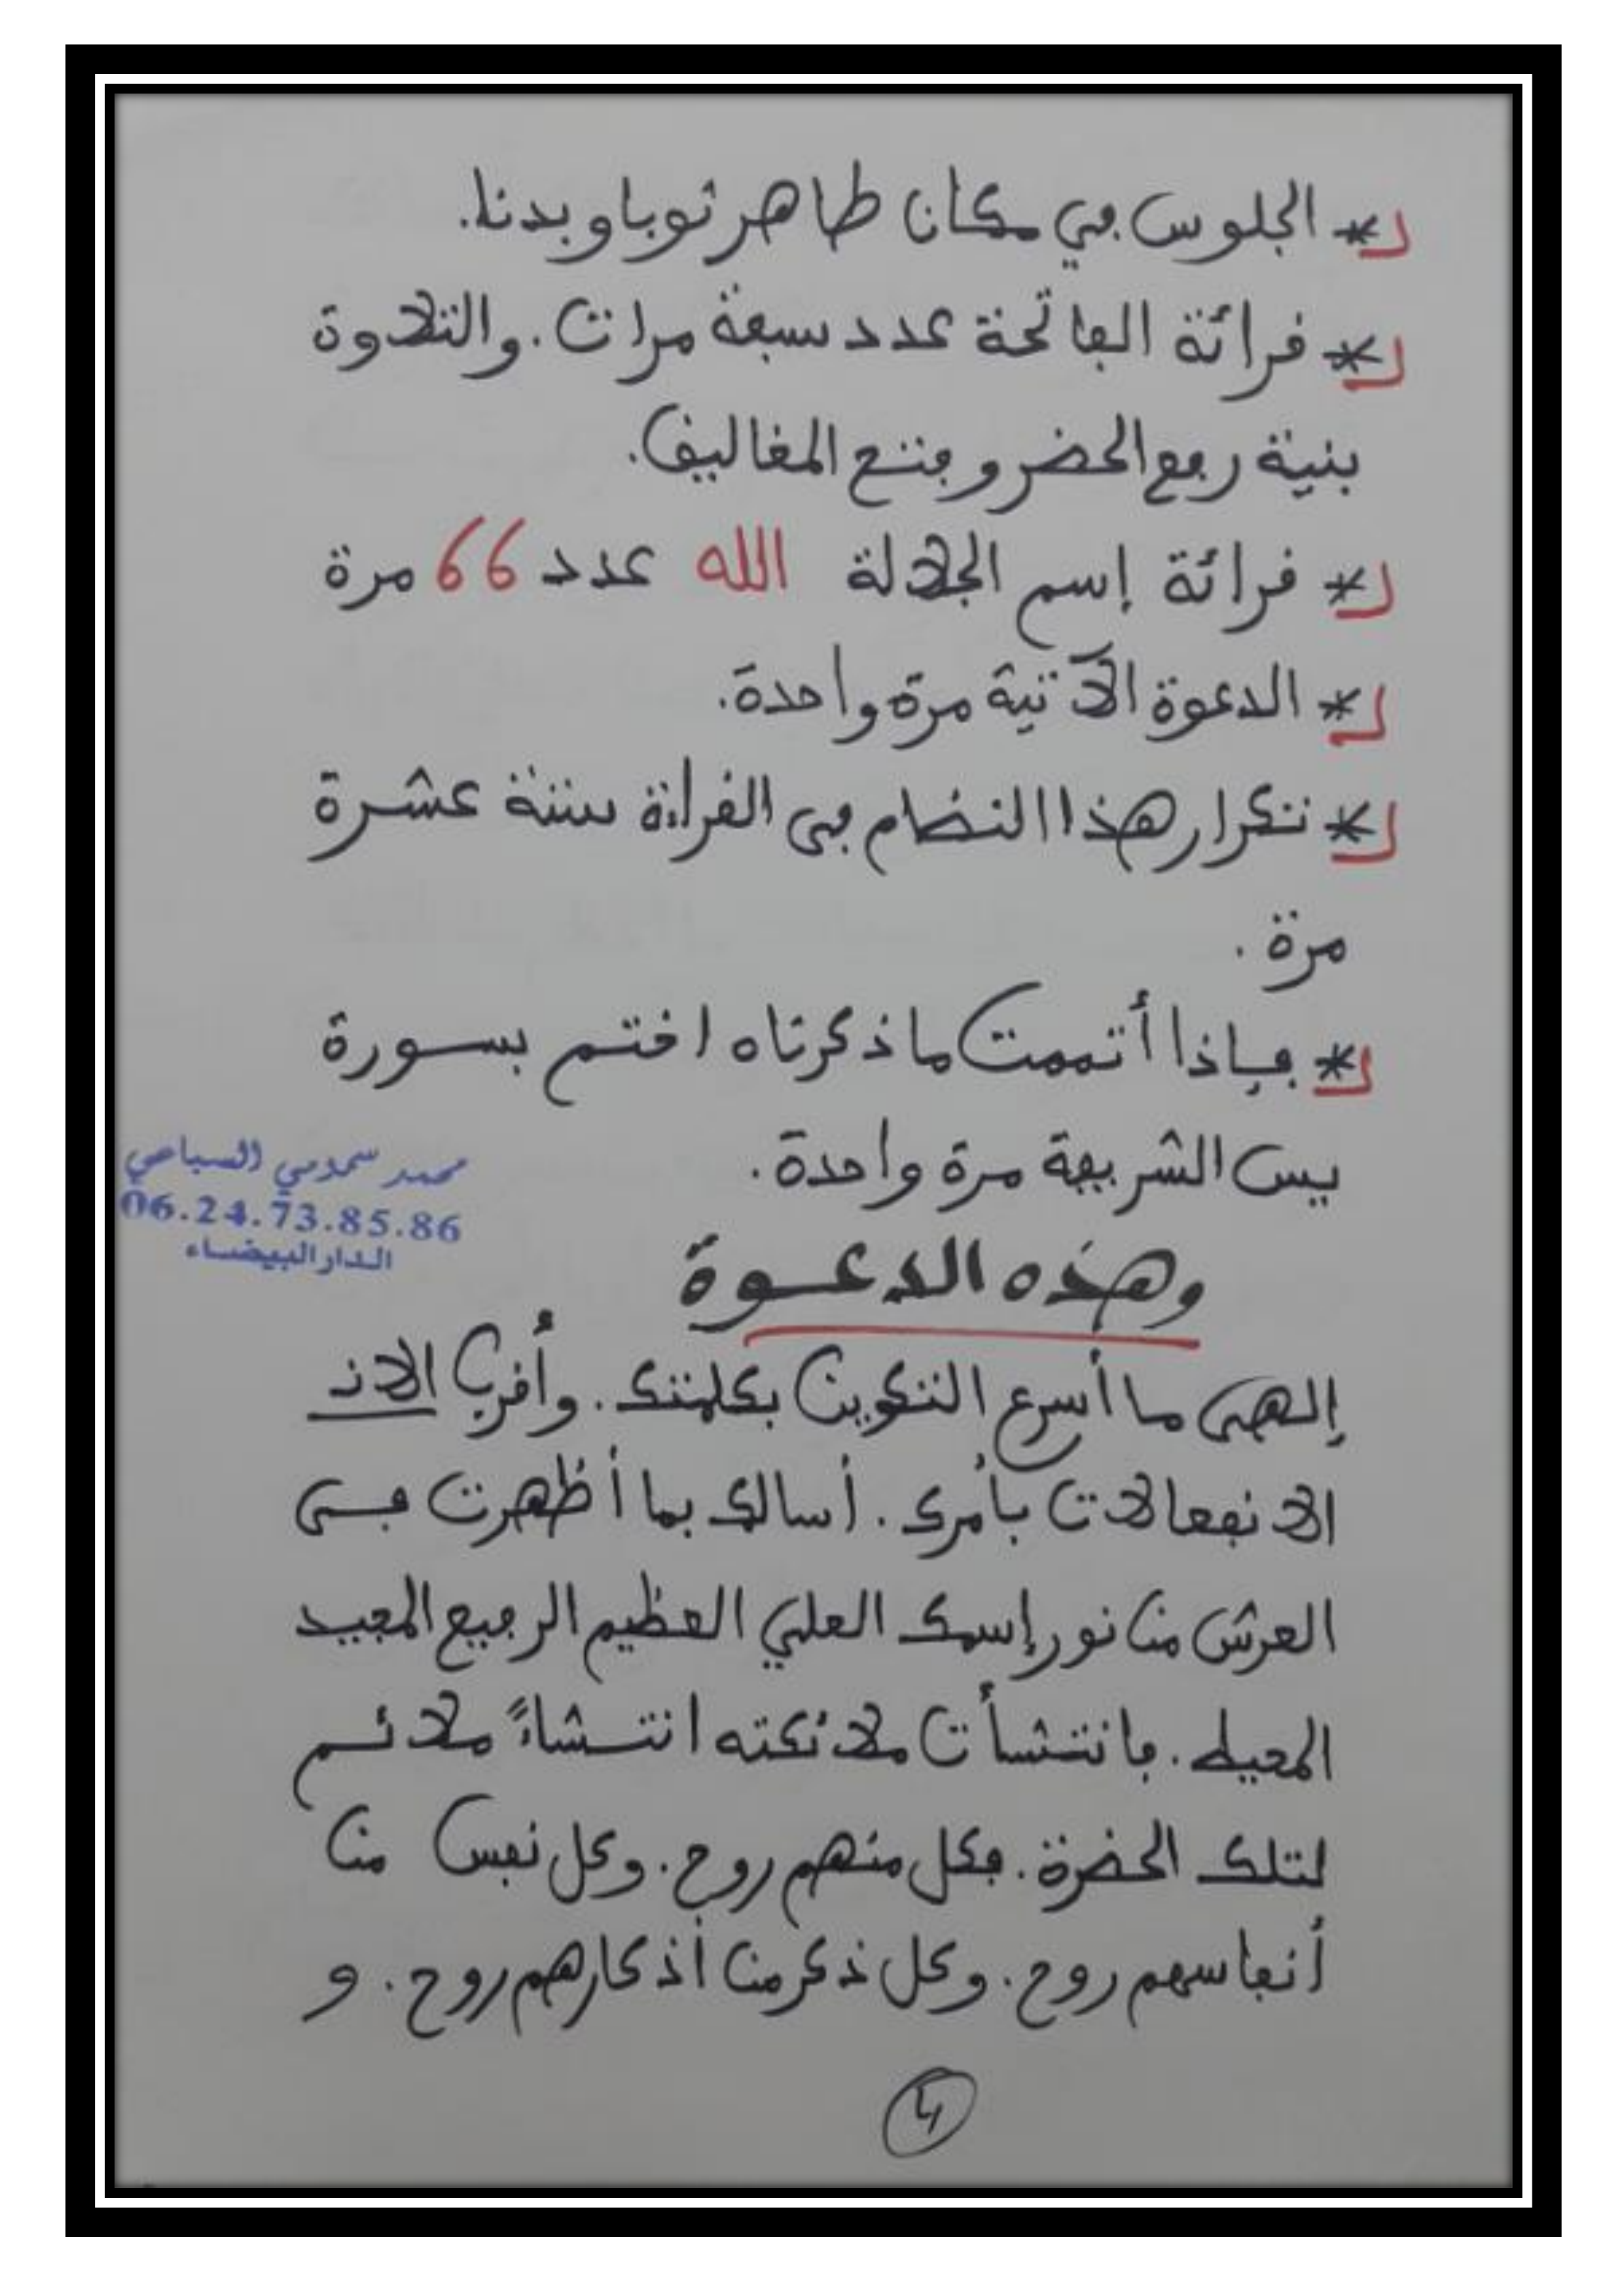 * الجلوس في مكان طاهر ثوبا وبدنا.
* قرائة الفاتحة عدد سبعة مرات. والتلاوة
بنية رفع الحضر وفتح المغاليق.
* قرائة إسم الجلالة الله عدد 66 مرة
* الدعوة الآتية مرة واحدة.
* تكرار هذا النضام في القراءة ستة عشرة
مرة.
* فإذا أتممت ما ذكرناه اختم بسورة
يس الشريفة مرة واحدة.
محمد سمومي السباعي
06.24.73.85.86
الدار البيضاء
وهذه الدعوة
إلهي ما أسرع التكوين بكلمتك. وأقرب الان
الانفعالات بأمرك. أسالك بما أظهرت في
العرش من نور إسمك العلي العظيم الرفيع المجيد
المحيط. فانتشأت ملائكته انتشاءً ملائم
لتلك الحضرة. فكل منهم روح. وكل نفس من
أنفاسهم روح. وكل ذكر من أذكارهم روح. و
4